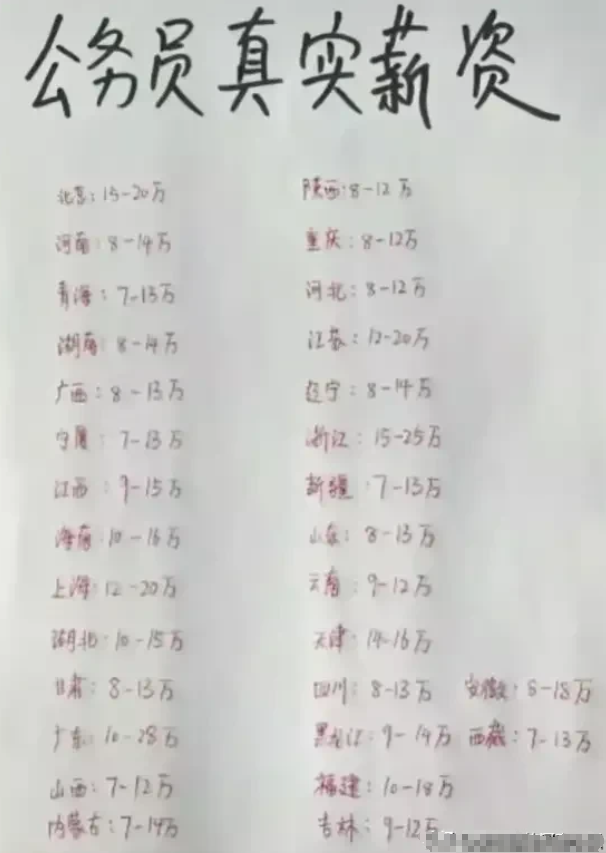 公务员真实薪资
北京:15-20万
河南:8-14万
青海:7-13万
湖南:8-14万
广西:8-13万
宁夏:7-13万
江西:9-15万
海南:10-16万
上海:12-20万
湖北:10-15万
甘肃:8-13万
广东:10-28万
山西:7-12万
内蒙古:7-14万
陕西:8-12万
重庆:8-12万
河北:8-12万
江苏:12-20万
辽宁:8-14万
浙江:15-25万
新疆:7-13万
山东:8-13万
云南:9-12万
天津:14-16万
四川:8-13万
黑龙江:9-14万
福建:10-18万
吉林:9-12万
安徽:8-18万
西藏:7-13万